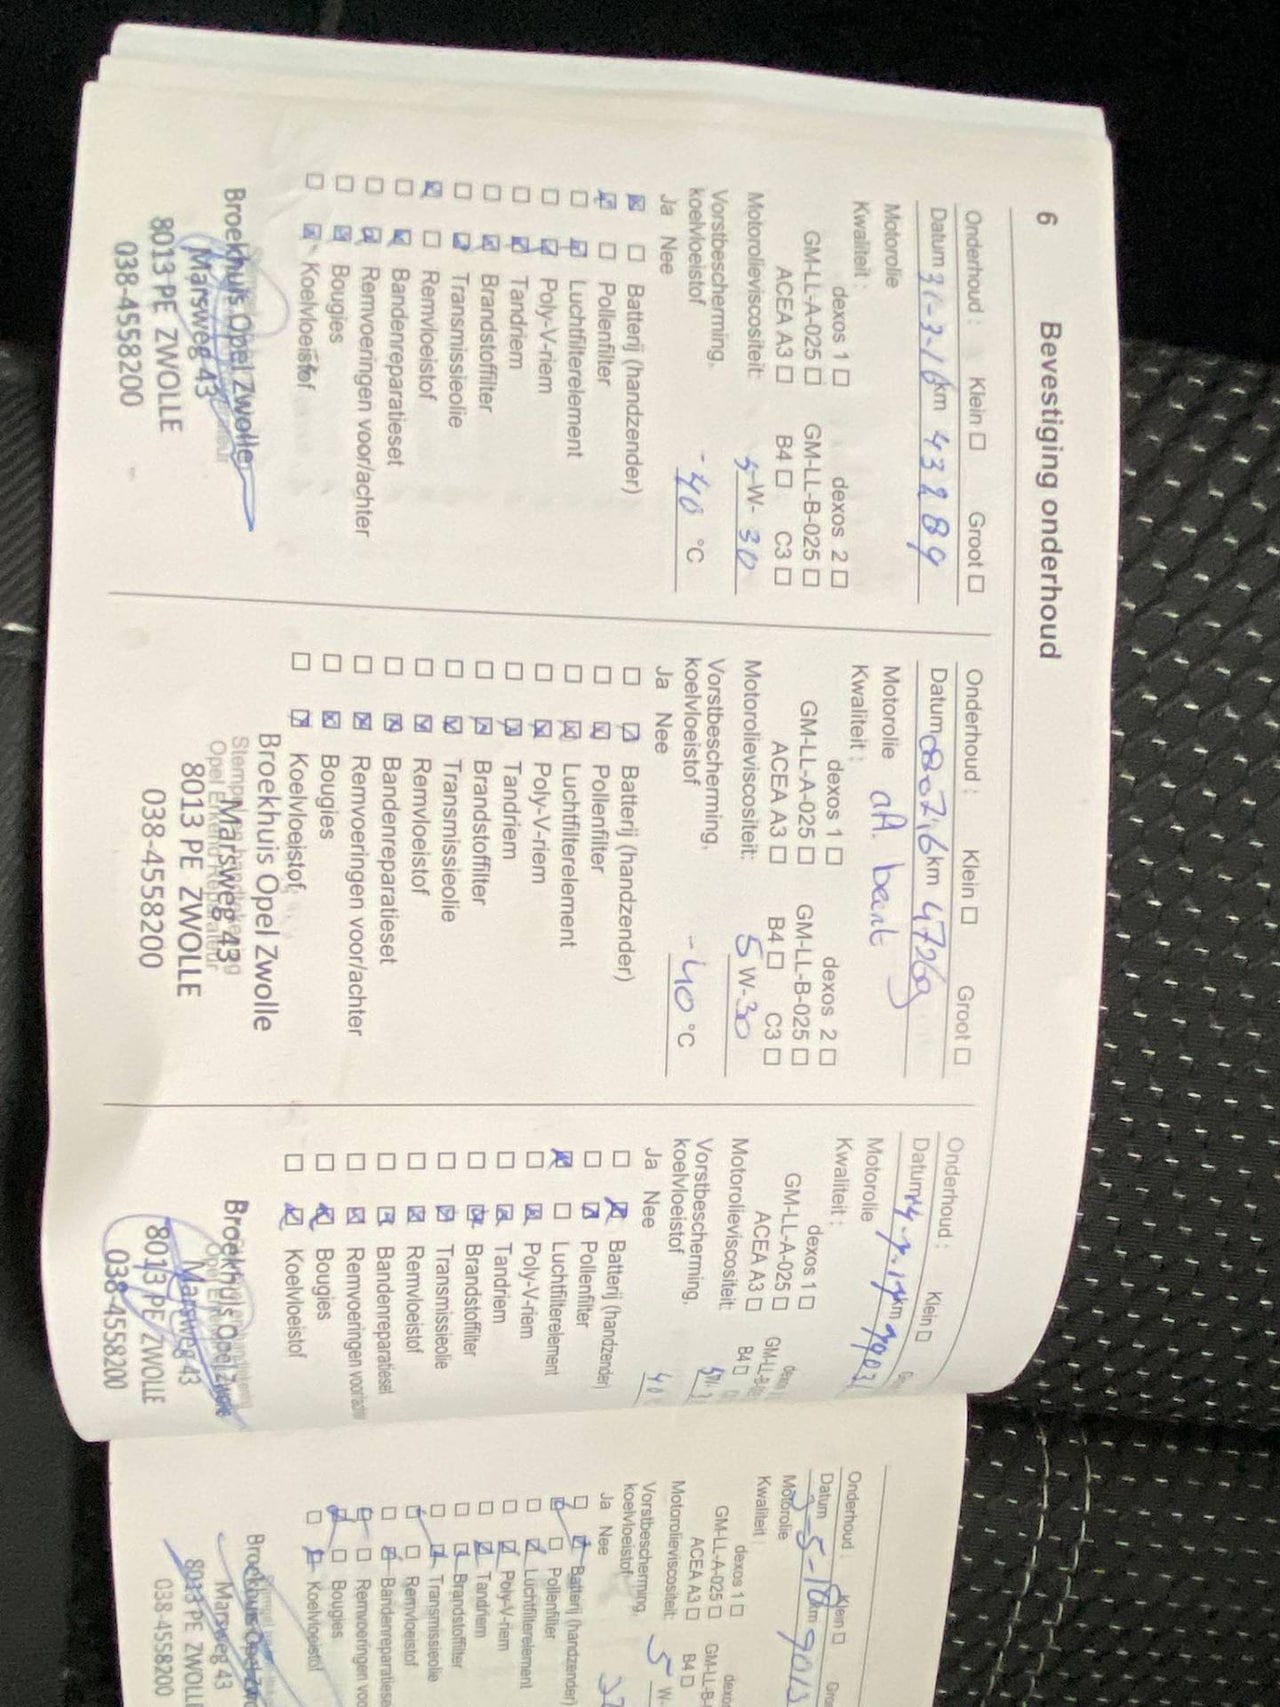 6 Bevestiging onderhoud
Onderhoud : Klein ☐ Groot ☐
Datum 31-3-16 km 43289
Motorolie
Kwaliteit :
dexos 1 ☐ dexos 2 ☐
GM-LL-A-025 ☐ GM-LL-B-025 ☐
ACEA A3 ☐ B4 ☐ C3 ☐
Motorolieviscositeit: 5 W- 30
Vorstbescherming,
koelvloeistof - 40 °C
Ja Nee
☒ ☐ Batterij (handzender)
☒ ☐ Pollenfilter
☐ ☒ Luchtfilterelement
☐ ☒ Poly-V-riem
☐ ☒ Tandriem
☐ ☒ Brandstoffilter
☐ ☒ Transmissieolie
☒ ☐ Remvloeistof
☐ ☒ Bandenreparatieset
☐ ☒ Remvoeringen voor/achter
☐ ☒ Bougies
☐ ☒ Koelvloeistof
Broekhuis Opel Zwolle
Marsweg 43
8013 PE ZWOLLE
038-4558200
Onderhoud : Klein ☐ Groot ☐
Datum km
Motorolie
Kwaliteit :
dexos 1 ☐ dexos 2 ☐
GM-LL-A-025 ☐ GM-LL-B-025 ☐
ACEA A3 ☐ B4 ☐ C3 ☐
Motorolieviscositeit: 5 W- 30
Vorstbescherming,
koelvloeistof - 40 °C
Ja Nee
☐ ☒ Batterij (handzender)
☐ ☒ Pollenfilter
☐ ☒ Luchtfilterelement
☐ ☒ Poly-V-riem
☐ ☒ Tandriem
☐ ☒ Brandstoffilter
☐ ☒ Transmissieolie
☐ ☒ Remvloeistof
☐ ☒ Bandenreparatieset
☐ ☒ Remvoeringen voor/achter
☐ ☒ Bougies
☐ ☒ Koelvloeistof
Stempel
Broekhuis Opel Zwolle
Marsweg 43
8013 PE ZWOLLE
038-4558200
Onderhoud : Klein ☐
Datum km
Motorolie
Kwaliteit :
dexos 1 ☐
GM-LL-A-025 ☐
ACEA A3 ☐ B4 ☐
Motorolieviscositeit:
Vorstbescherming,
koelvloeistof 40
Ja Nee
☐ ☒ Batterij (handzender)
☐ ☒ Pollenfilter
☒ ☐ Luchtfilterelement
☐ ☒ Poly-V-riem
☐ ☒ Tandriem
☐ ☒ Brandstoffilter
☐ ☒ Transmissieolie
☐ ☒ Remvloeistof
☐ ☒ Bandenreparatieset
☐ ☒ Remvoeringen
☐ ☒ Bougies
☐ ☒ Koelvloeistof
Broekhuis Opel Zwolle
Marsweg 43
8013 PE ZWOLLE
038-4558200
Onderhoud : Klein ☐
Datum km
Motorolie
Kwaliteit :
dexos 1 ☐
GM-LL-A-025 ☐
ACEA A3 ☐ B4 ☐
Motorolieviscositeit: 5 W-
Vorstbescherming,
koelvloeistof
Ja Nee
Batterij (handzender)
Pollenfilter
Luchtfilterelement
Poly-V-riem
Tandriem
Brandstoffilter
Transmissieolie
Remvloeistof
Bandenreparatiese
Remvoeringen
Bougies
Koelvloeistof
Marsweg 43
8013 PE ZWOLL
038-4558200